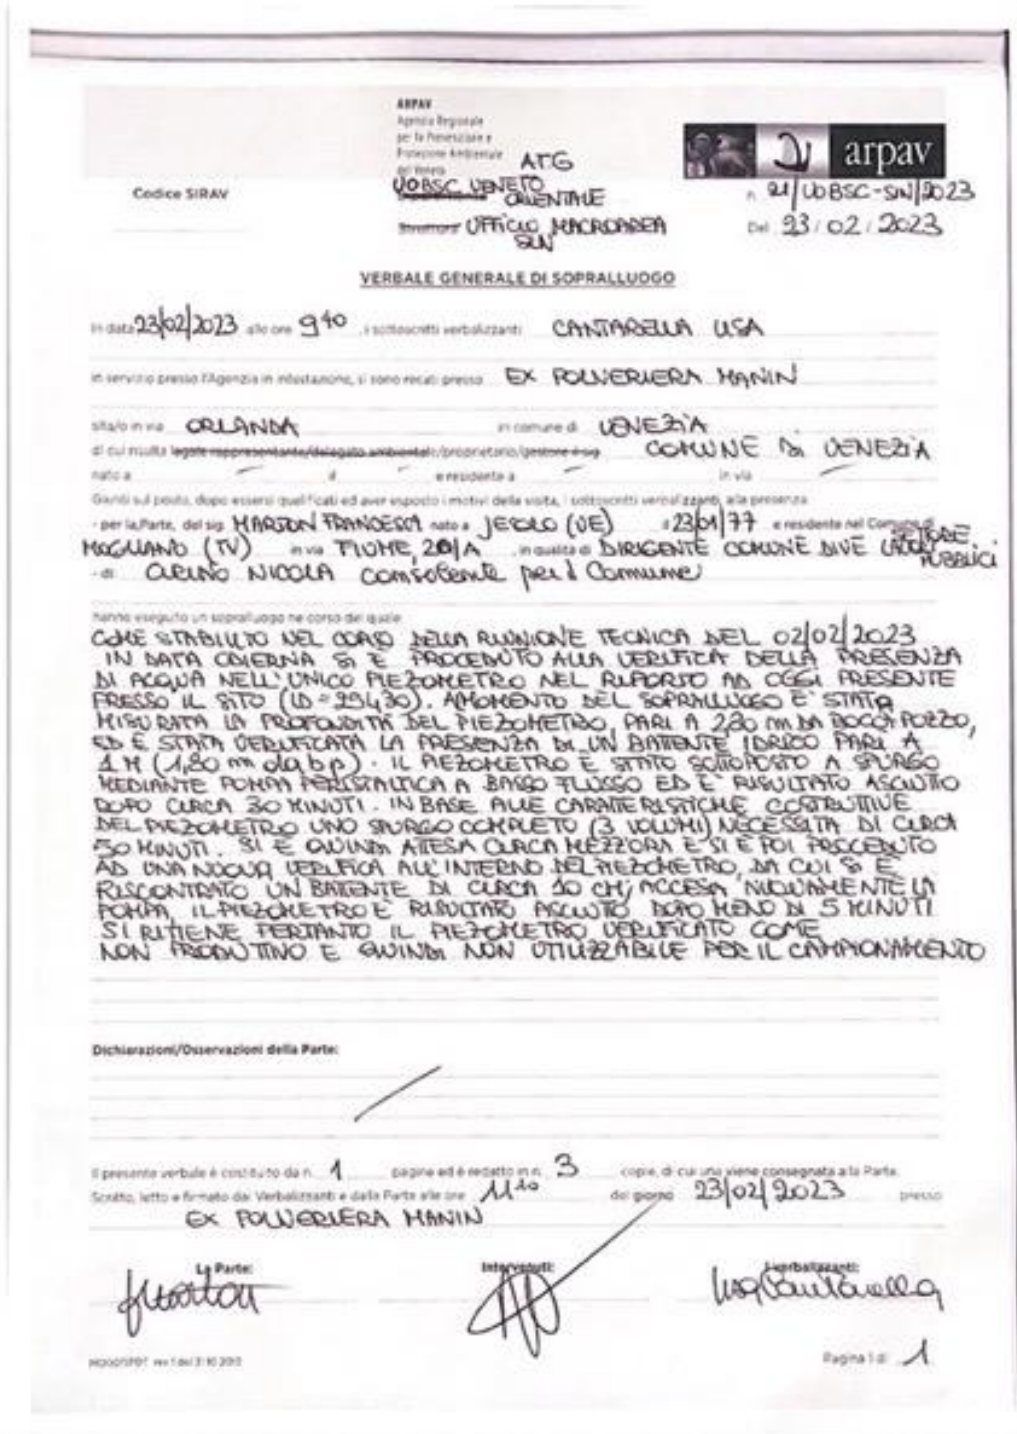 ARPAV
Agenzia Regionale
per la Prevenzione e
Protezione Ambientale
del Veneto
ATG
arpav
Codice SIRAV
UOBSC VENETO
ORIENTALE
n. 21/UOBSC-SIN/2023
Struttura UFFICIO MACROAREA
SIN
Del 23/02/2023
VERBALE GENERALE DI SOPRALLUOGO
In data 23/02/2023 alle ore 9 40, i sottoscritti verbalizzanti CANTARELLA LISA
in servizio presso l'Agenzia in intestazione, si sono recati presso EX POLVERIERA MANIN
sita/o in via ORLANDA in comune di VENEZIA
di cui risulta legale rappresentante/delegato ambientale/proprietario/gestore il sig. COMUNE DI VENEZIA
nato a – il – e residente a – in via –
Giunti sul posto, dopo essersi qualificati ed aver esposto i motivi della visita, i sottoscritti verbalizzanti, alla presenza
- per la Parte, del sig. MARTON FRANCESCA nato a JESOLO (VE) il 23/01/77 e residente nel Comune di
MOGLIANO (TV) in via FIUME, 20/A, in qualità di DIRIGENTE COMUNE DI VE SETTORE LAVORI PUBBLICI
- di NICOLA consulente per il Comune
hanno eseguito un sopralluogo nel corso del quale:
COME STABILITO NEL CORSO DELLA RIUNIONE TECNICA DEL 02/02/2023
IN DATA ODIERNA SI È PROCEDUTO ALLA VERIFICA DELLA PRESENZA
DI ACQUA NELL'UNICO PIEZOMETRO NEL RIPORTO AD OGGI PRESENTE
PRESSO IL SITO (ID=29430). AL MOMENTO DEL SOPRALLUOGO È STATA
MISURATA LA PROFONDITÀ DEL PIEZOMETRO, PARI A 2,80 m DA BOCCA POZZO,
ED È STATA VERIFICATA LA PRESENZA DI UN BATTENTE IDRICO PARI A
1 M (1,80 m da b.p.). IL PIEZOMETRO È STATO SOTTOPOSTO A SPURGO
MEDIANTE POMPA PERISTALTICA A BASSO FLUSSO ED È RISULTATO ASCIUTTO
DOPO CIRCA 30 MINUTI. IN BASE ALLE CARATTERISTICHE COSTRUTTIVE
DEL PIEZOMETRO UNO SPURGO COMPLETO (3 VOLUMI) NECESSITA DI CIRCA
50 MINUTI. SI È QUINDI ATTESA CIRCA MEZZORA E SI È POI PROCEDUTO
AD UNA NUOVA VERIFICA ALL'INTERNO DEL PIEZOMETRO, DA CUI SI È
RISCONTRATO UN BATTENTE DI CIRCA 10 CM; ACCESA NUOVAMENTE LA
POMPA, IL PIEZOMETRO È RISULTATO ASCIUTTO DOPO MENO DI 5 MINUTI
SI RITIENE PERTANTO IL PIEZOMETRO VERIFICATO COME
NON PRODUTTIVO E QUINDI NON UTILIZZABILE PER IL CAMPIONAMENTO
Dichiarazioni/Osservazioni della Parte:
Il presente verbale è costituito da n. 1 pagine ed è redatto in n. 3 copie, di cui una viene consegnata alla Parte.
Scritto, letto e firmato dai Verbalizzanti e dalla Parte alle ore 11 20 del giorno 23/02/2023 presso
EX POLVERIERA MANIN
La Parte: Intervenuti: I verbalizzanti:
Lisa Cantarella
Pagina 1 di 1